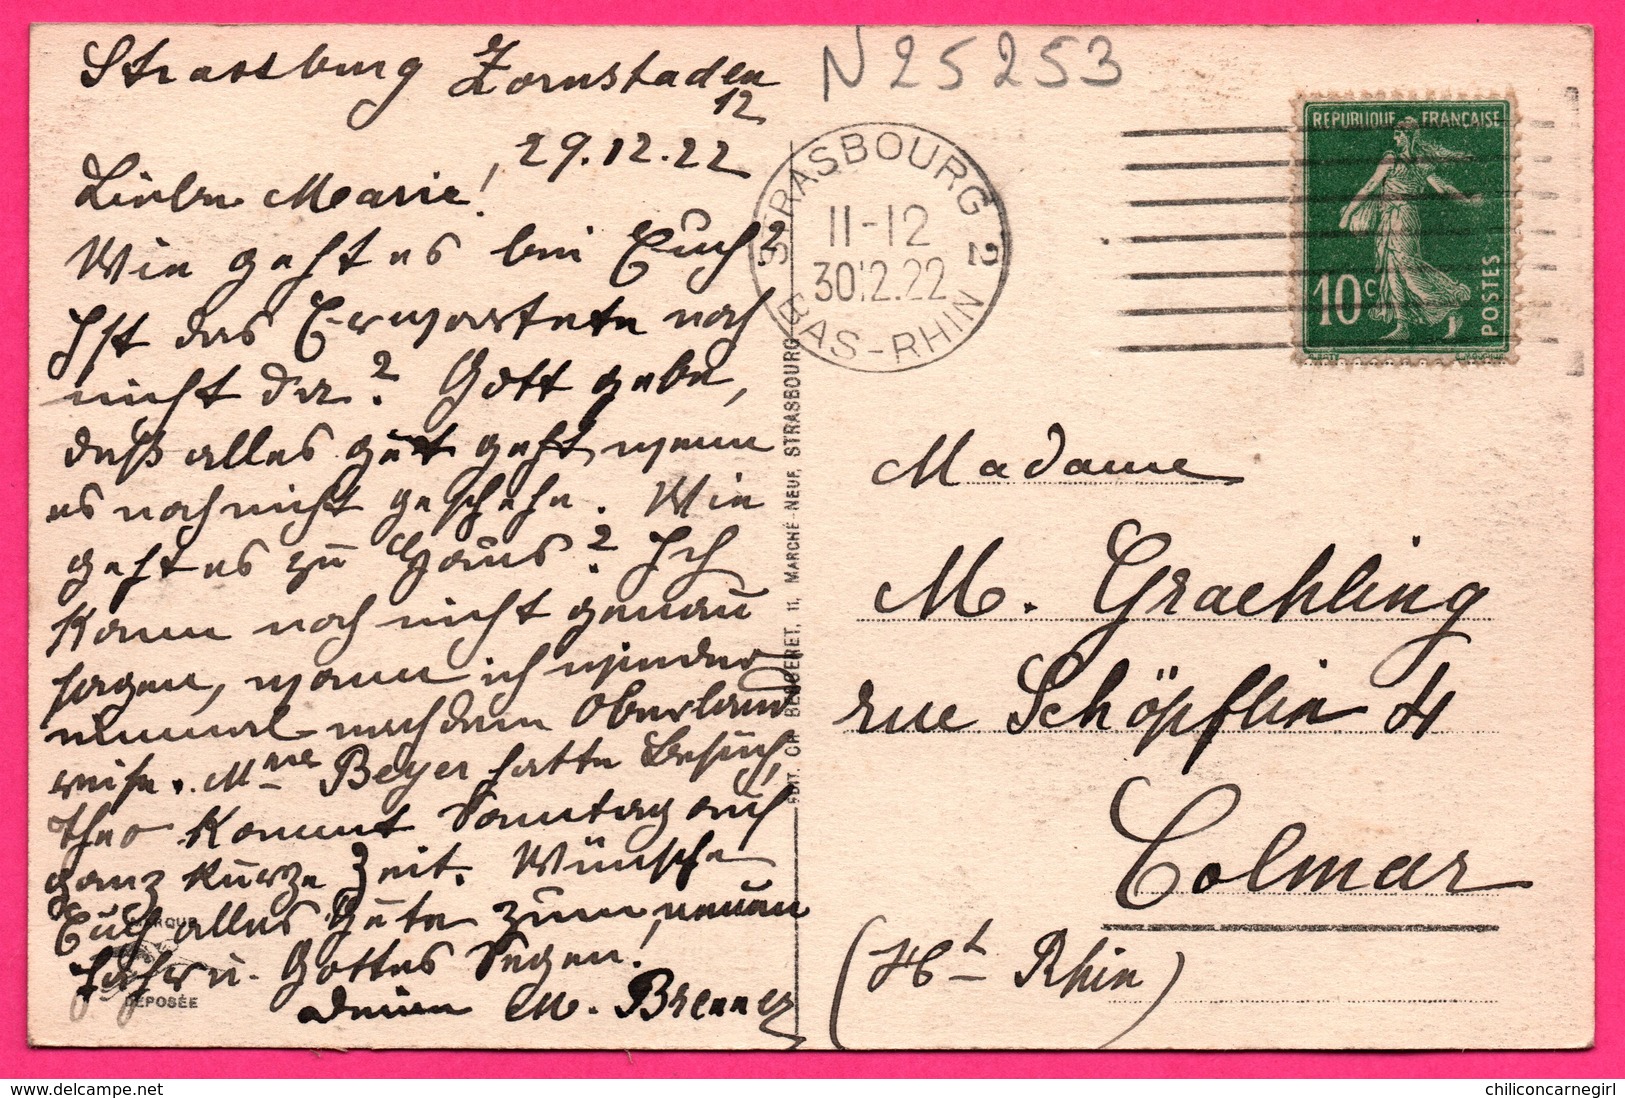 Strassburg Zornstaden
12
29.12.22
Liebe Marie!
Wie geht es bei Euch?
Ist das Erwartete noch
nicht da? Gott gebe,
daß alles gut geht, wenn
es noch nicht geschehe. Wie
geht es zu Haus? Ich
kann noch nicht genau
sagen, wann ich wieder
einmal nach dem Oberland
reise. Mme Beyer hatte Besuch,
Theo kommt Sonntag auf
ganz kurze Zeit. Wünsche
Euch alles Gute zum neuen
Jahr u. Gottes Segen!
Deine M. Brenner
MARQUE
DÉPOSÉE
EDIT. CH. BERGERET, 11, MARCHÉ-NEUF, STRASBOURG
N 25253
STRASBOURG 2
11-12
30.12.22
BAS-RHIN
REPUBLIQUE FRANÇAISE
10c
POSTES
Madame
M. Graehling
rue Schöpflin 4
Colmar
(Ht Rhin)
chiliconcarnegirl
delcampe.net